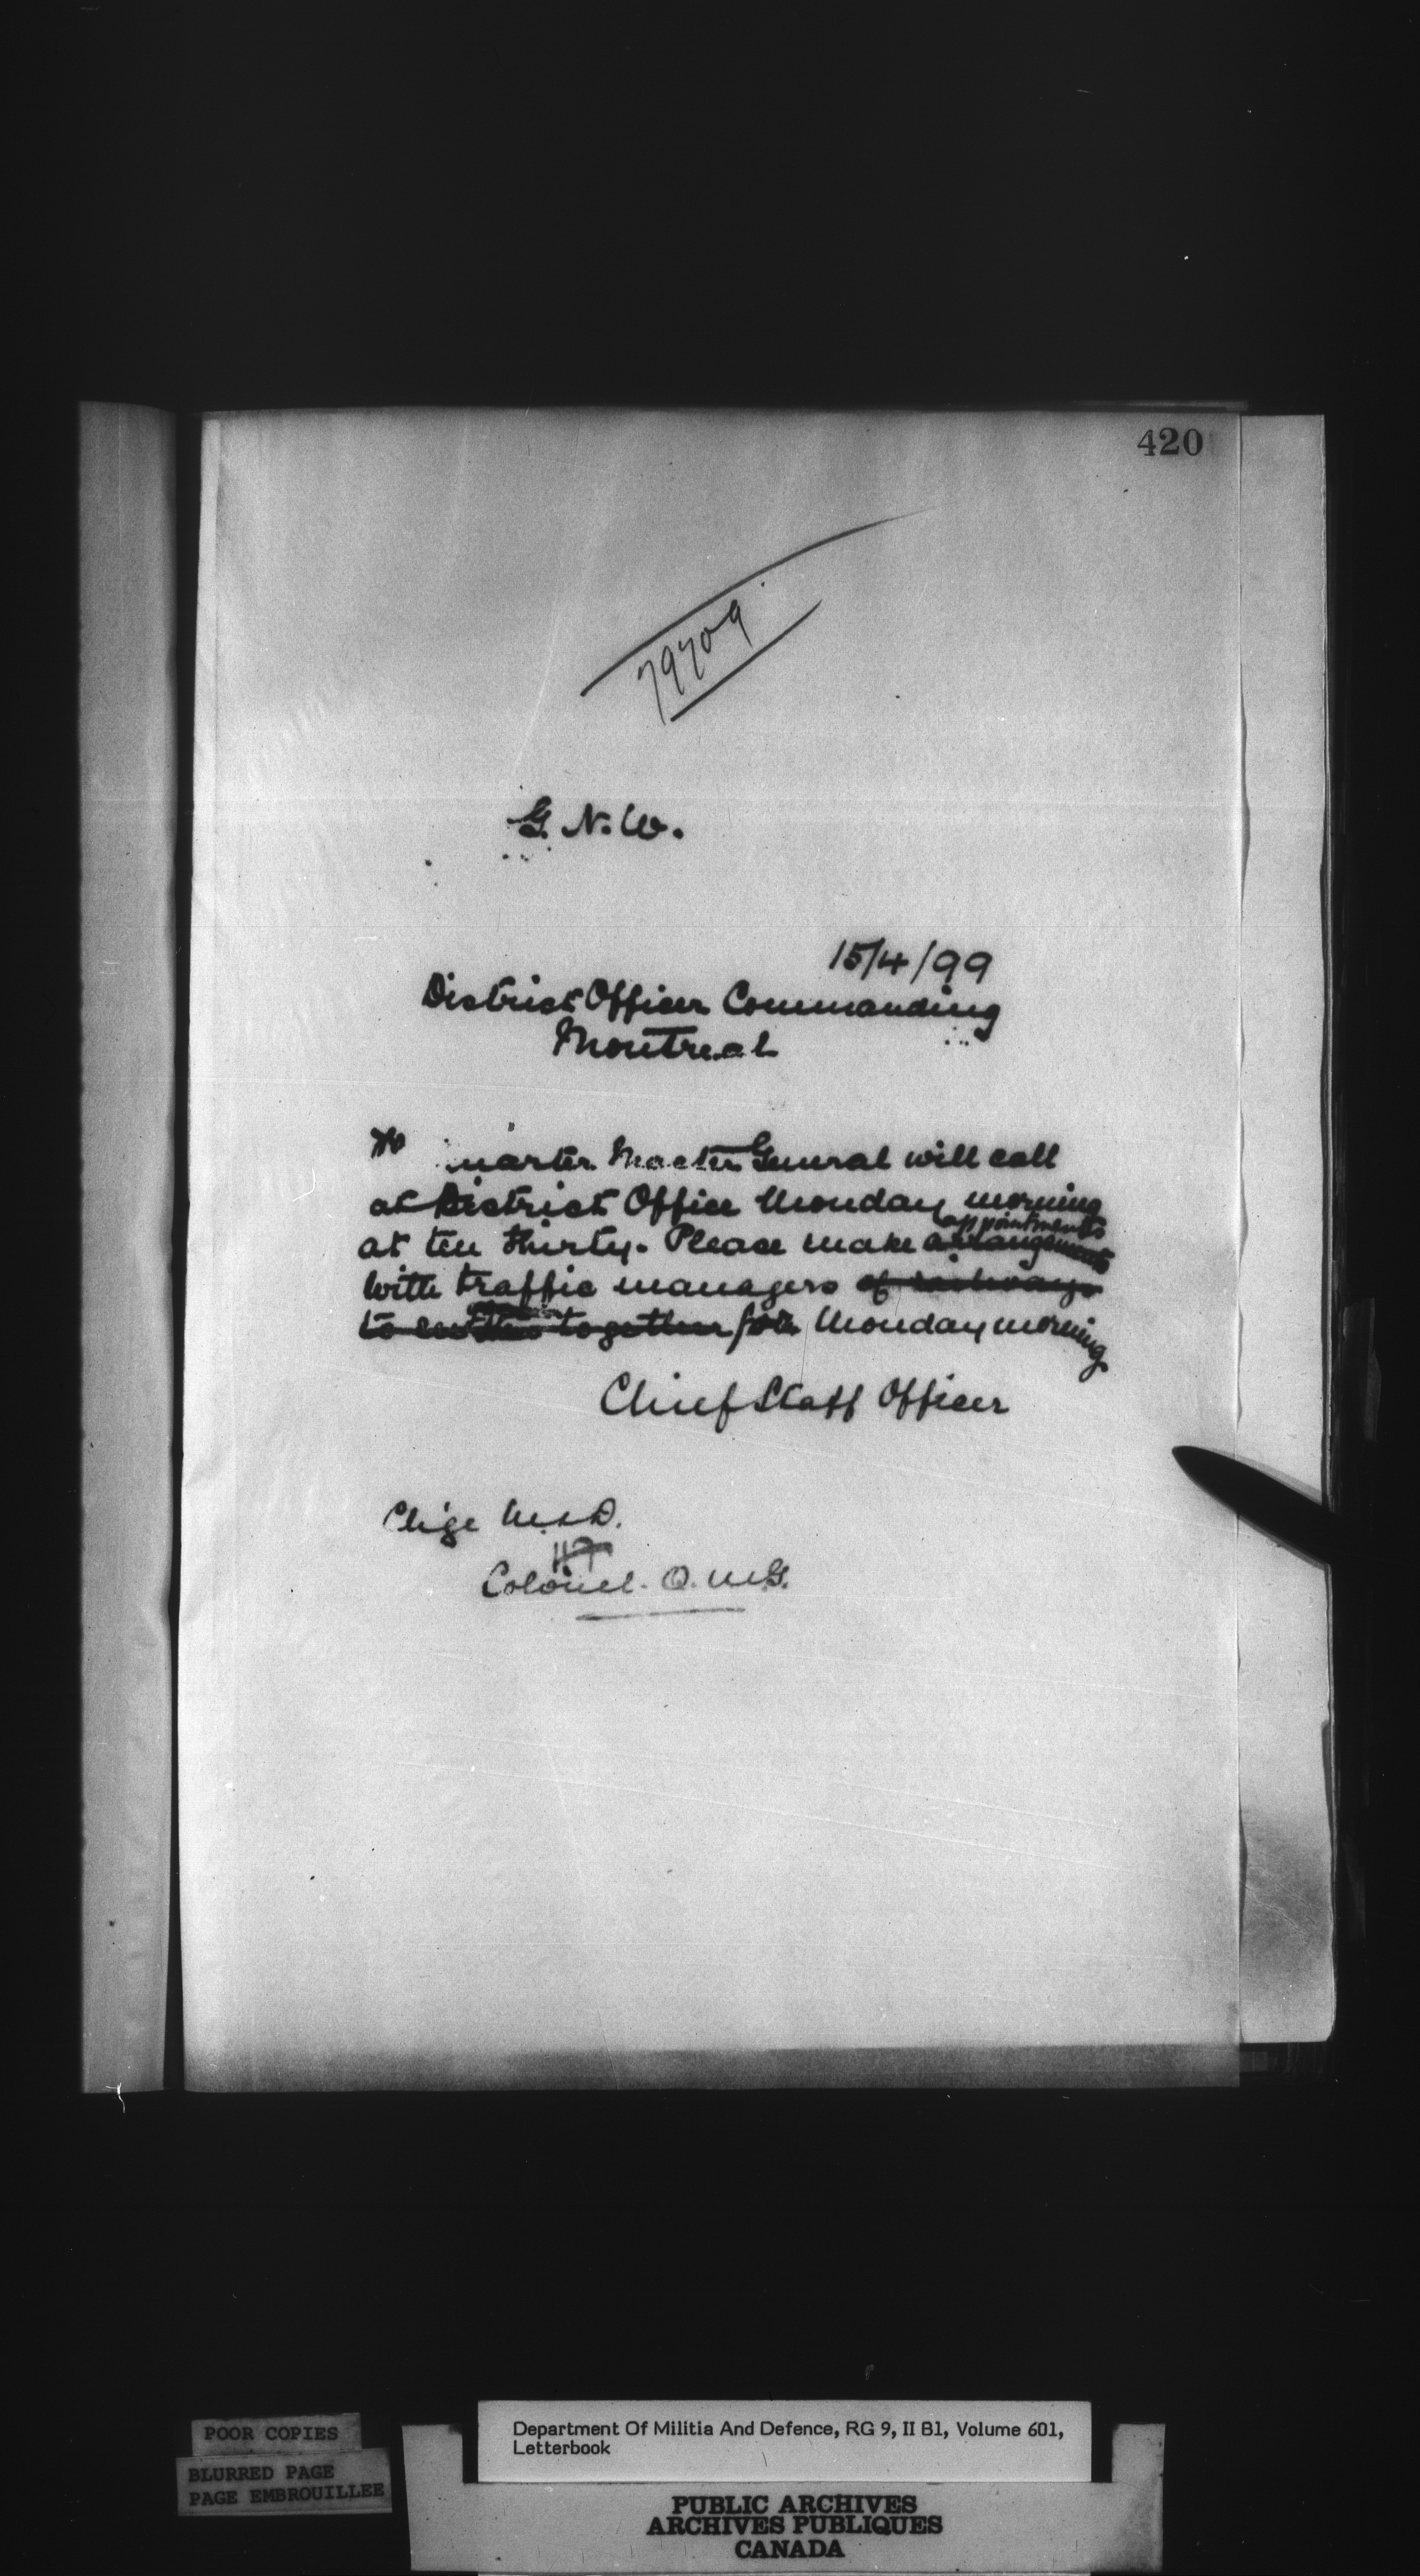 420
79709
G. N. W.
15/4/99
District Officer Commanding
Montreal
uarter Master General will call
at District Office Monday morning
appointments
at ten thirty. Please make arrangements
with traffic managers of railways
to together for Monday morning
Chief Staff Officer
Chge M. & D.
Colonel. Q. M. G.
POOR COPIES
BLURRED PAGE
PAGE EMBROUILLEE
Department Of Militia And Defence, RG 9, II B1, Volume 601,
Letterbook
PUBLIC ARCHIVES
ARCHIVES PUBLIQUES
CANADA